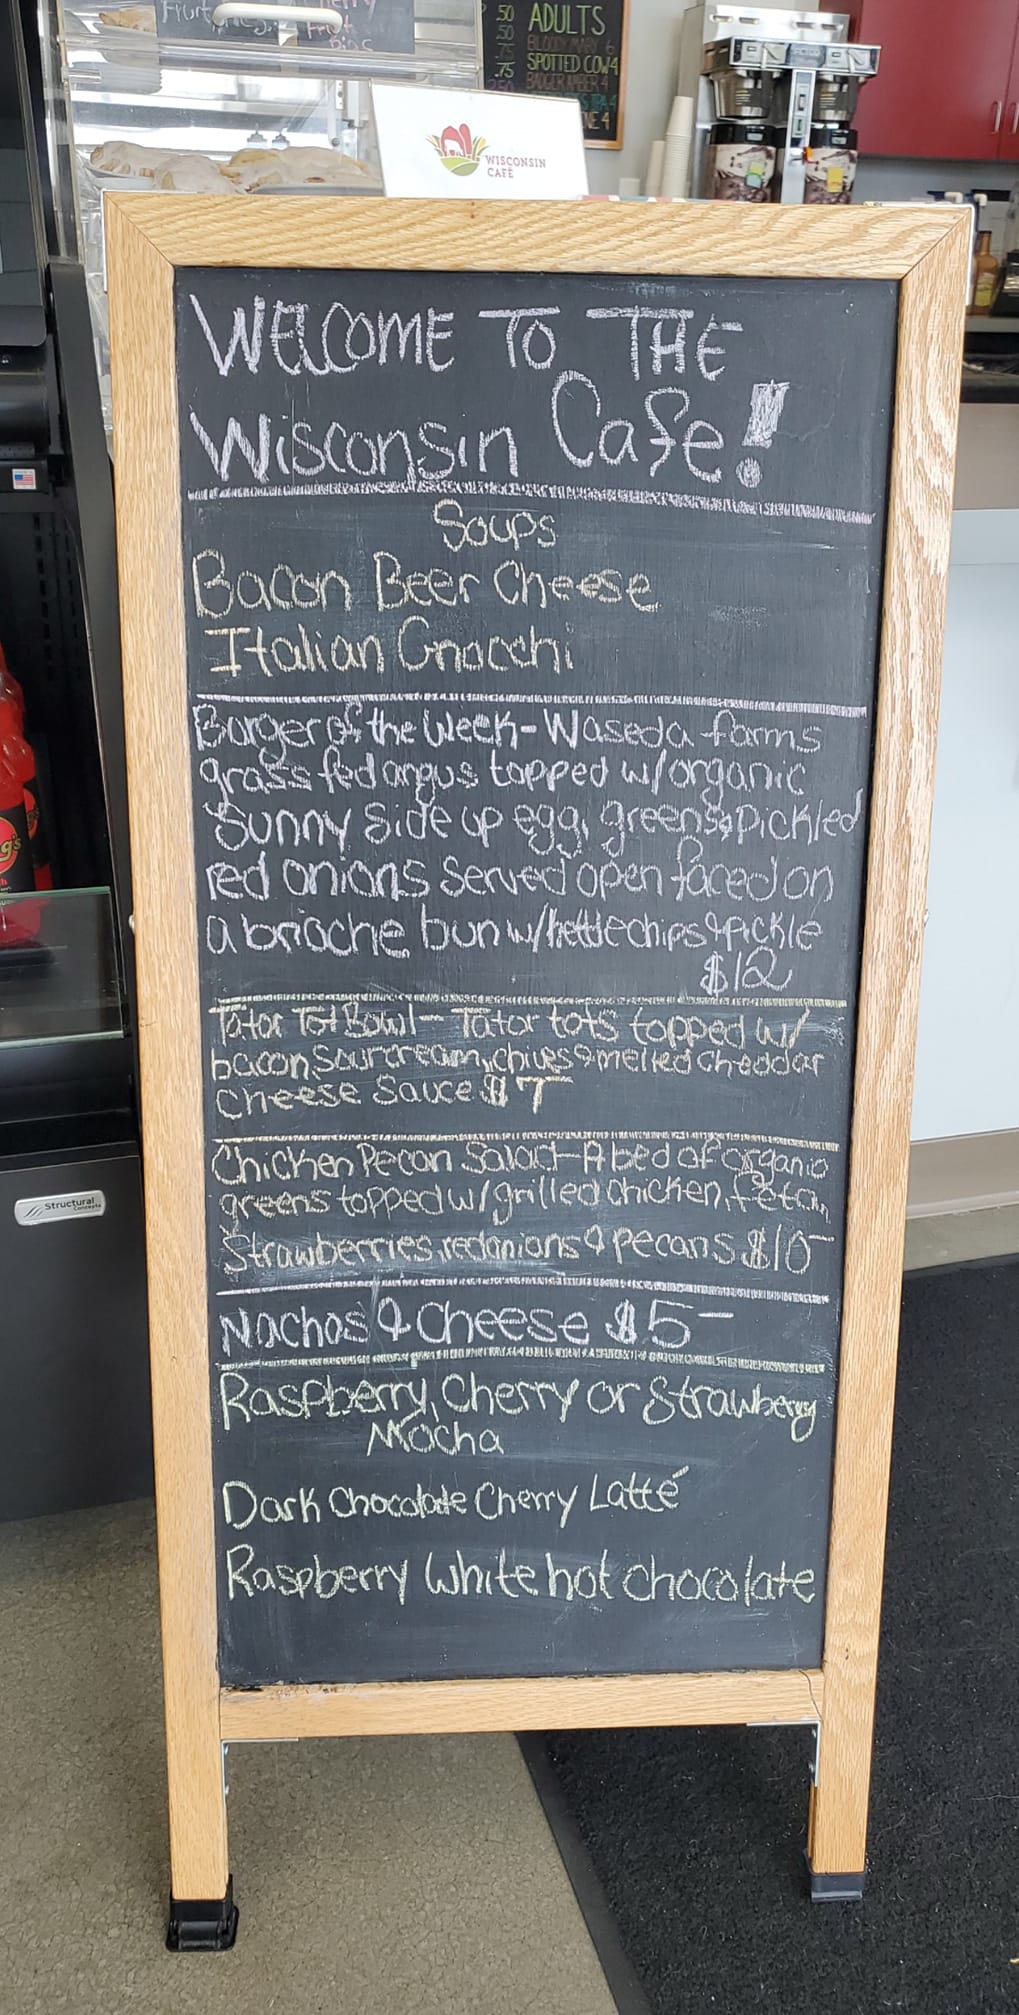 .50
.50
.75
.75
ADULTS
BLOODY MARY 6
SPOTTED COW 4
BADGER AMBER 4
WISCONSIN
CAFÉ
WELCOME TO THE
Wisconsin Cafe!
Soups
Bacon Beer Cheese
Italian Gnocchi
Burger of the Week - Waseda farms
grass fed angus topped w/organic
Sunny Side up egg, greens & pickled
red onions Served open faced on
a brioche bun w/kettle chips & pickle
$12
Tator Tot Bowl - Tator tots topped w/
bacon, Sourcream, chives & melted cheddar
Cheese Sauce $7-
Chicken Pecan Salad - A bed of organic
greens topped w/grilled chicken, feta,
Strawberries, red onions & pecans $10-
Nachos & Cheese $5-
Raspberry, Cherry or Strawberry
Mocha
Dark Chocolate Cherry Latté
Raspberry White hot chocolate
Structural
Concepts